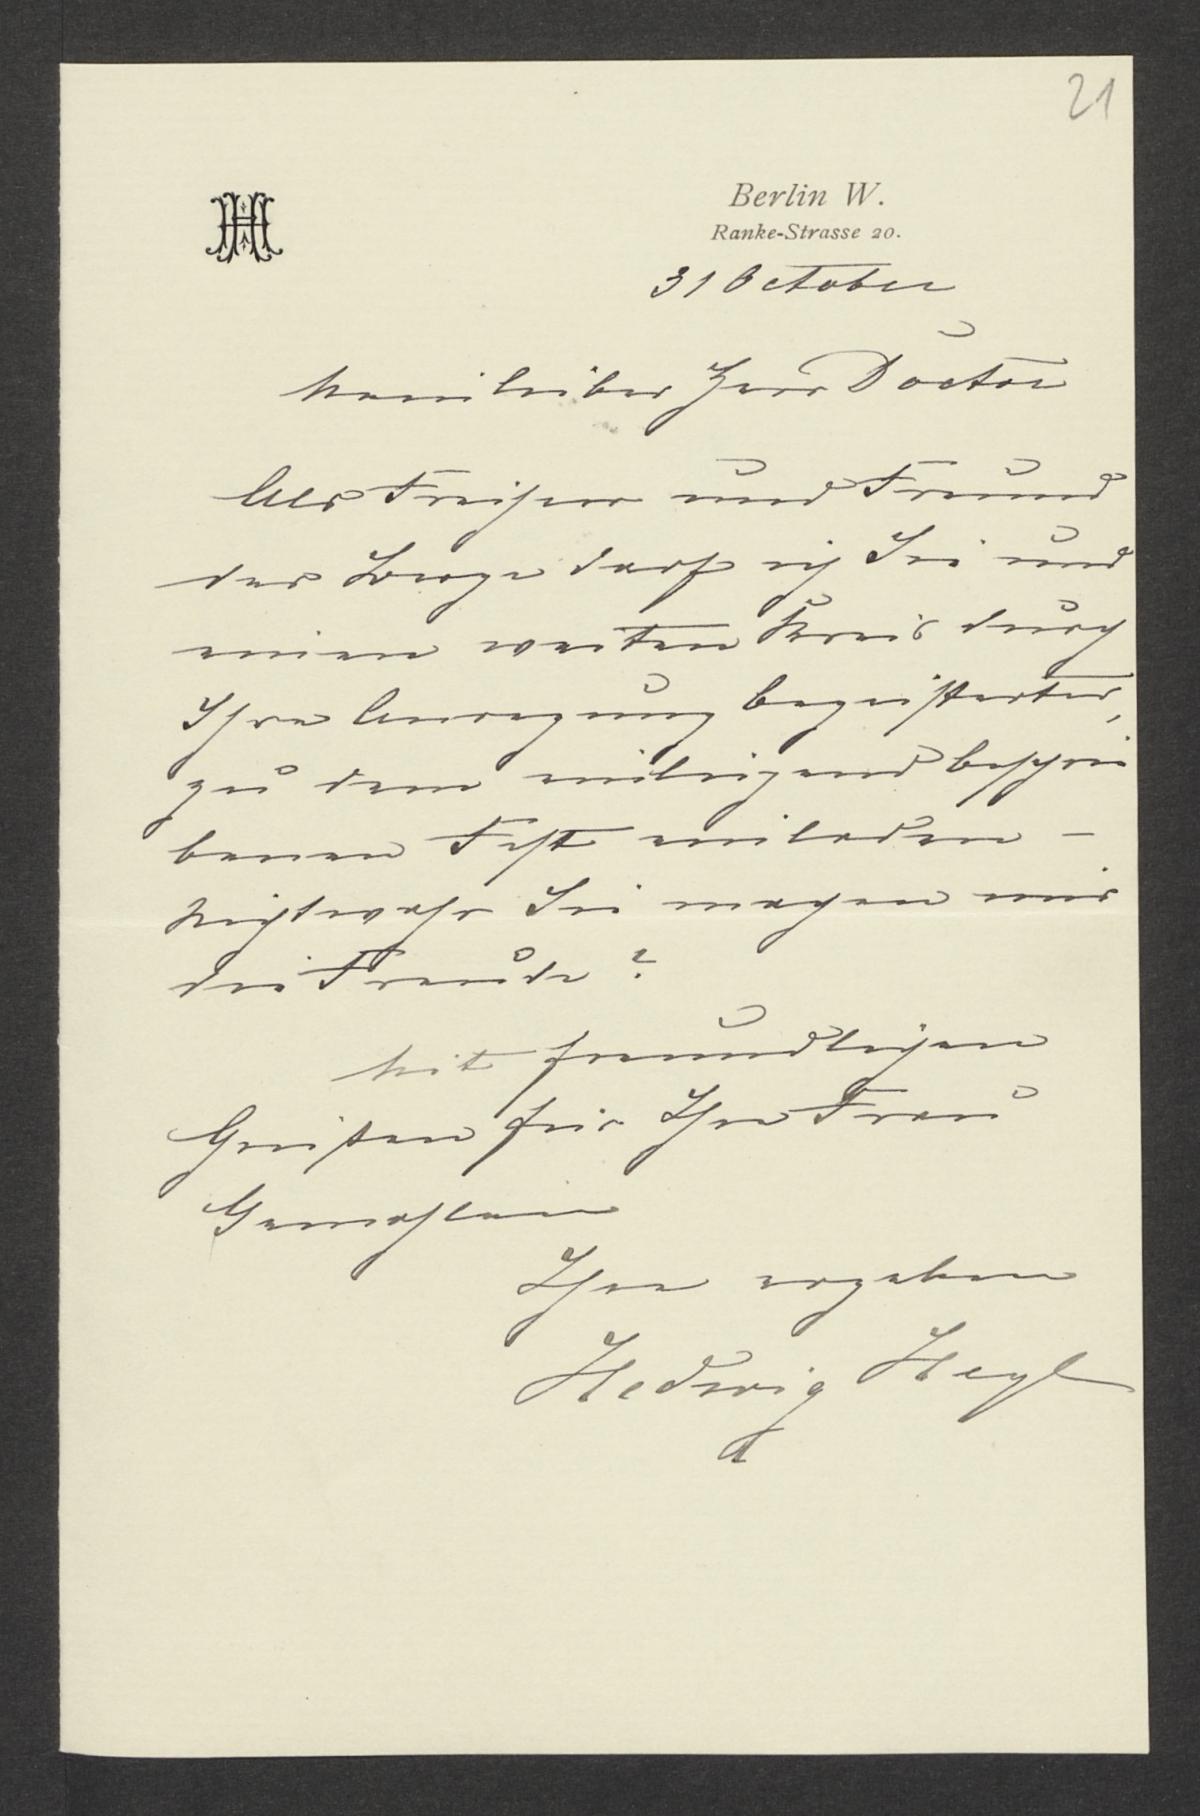 21
HH
Berlin W.
Ranke-Strasse 20.
31 October
Mein lieber Herr Doctor
Als Freiherr und Freund
der Berge darf ich Sie und
einen weiten Kreis durch
Ihre Anregung begeisterter,
zu dem einliegend beschrie
benen Fest einladen –
Nichtwahr Sie machen mir
die Freude?
Mit freundlichen
Grüßen für Ihre Frau
Gemahlin
Ihre ergeben
Hedwig Heyl